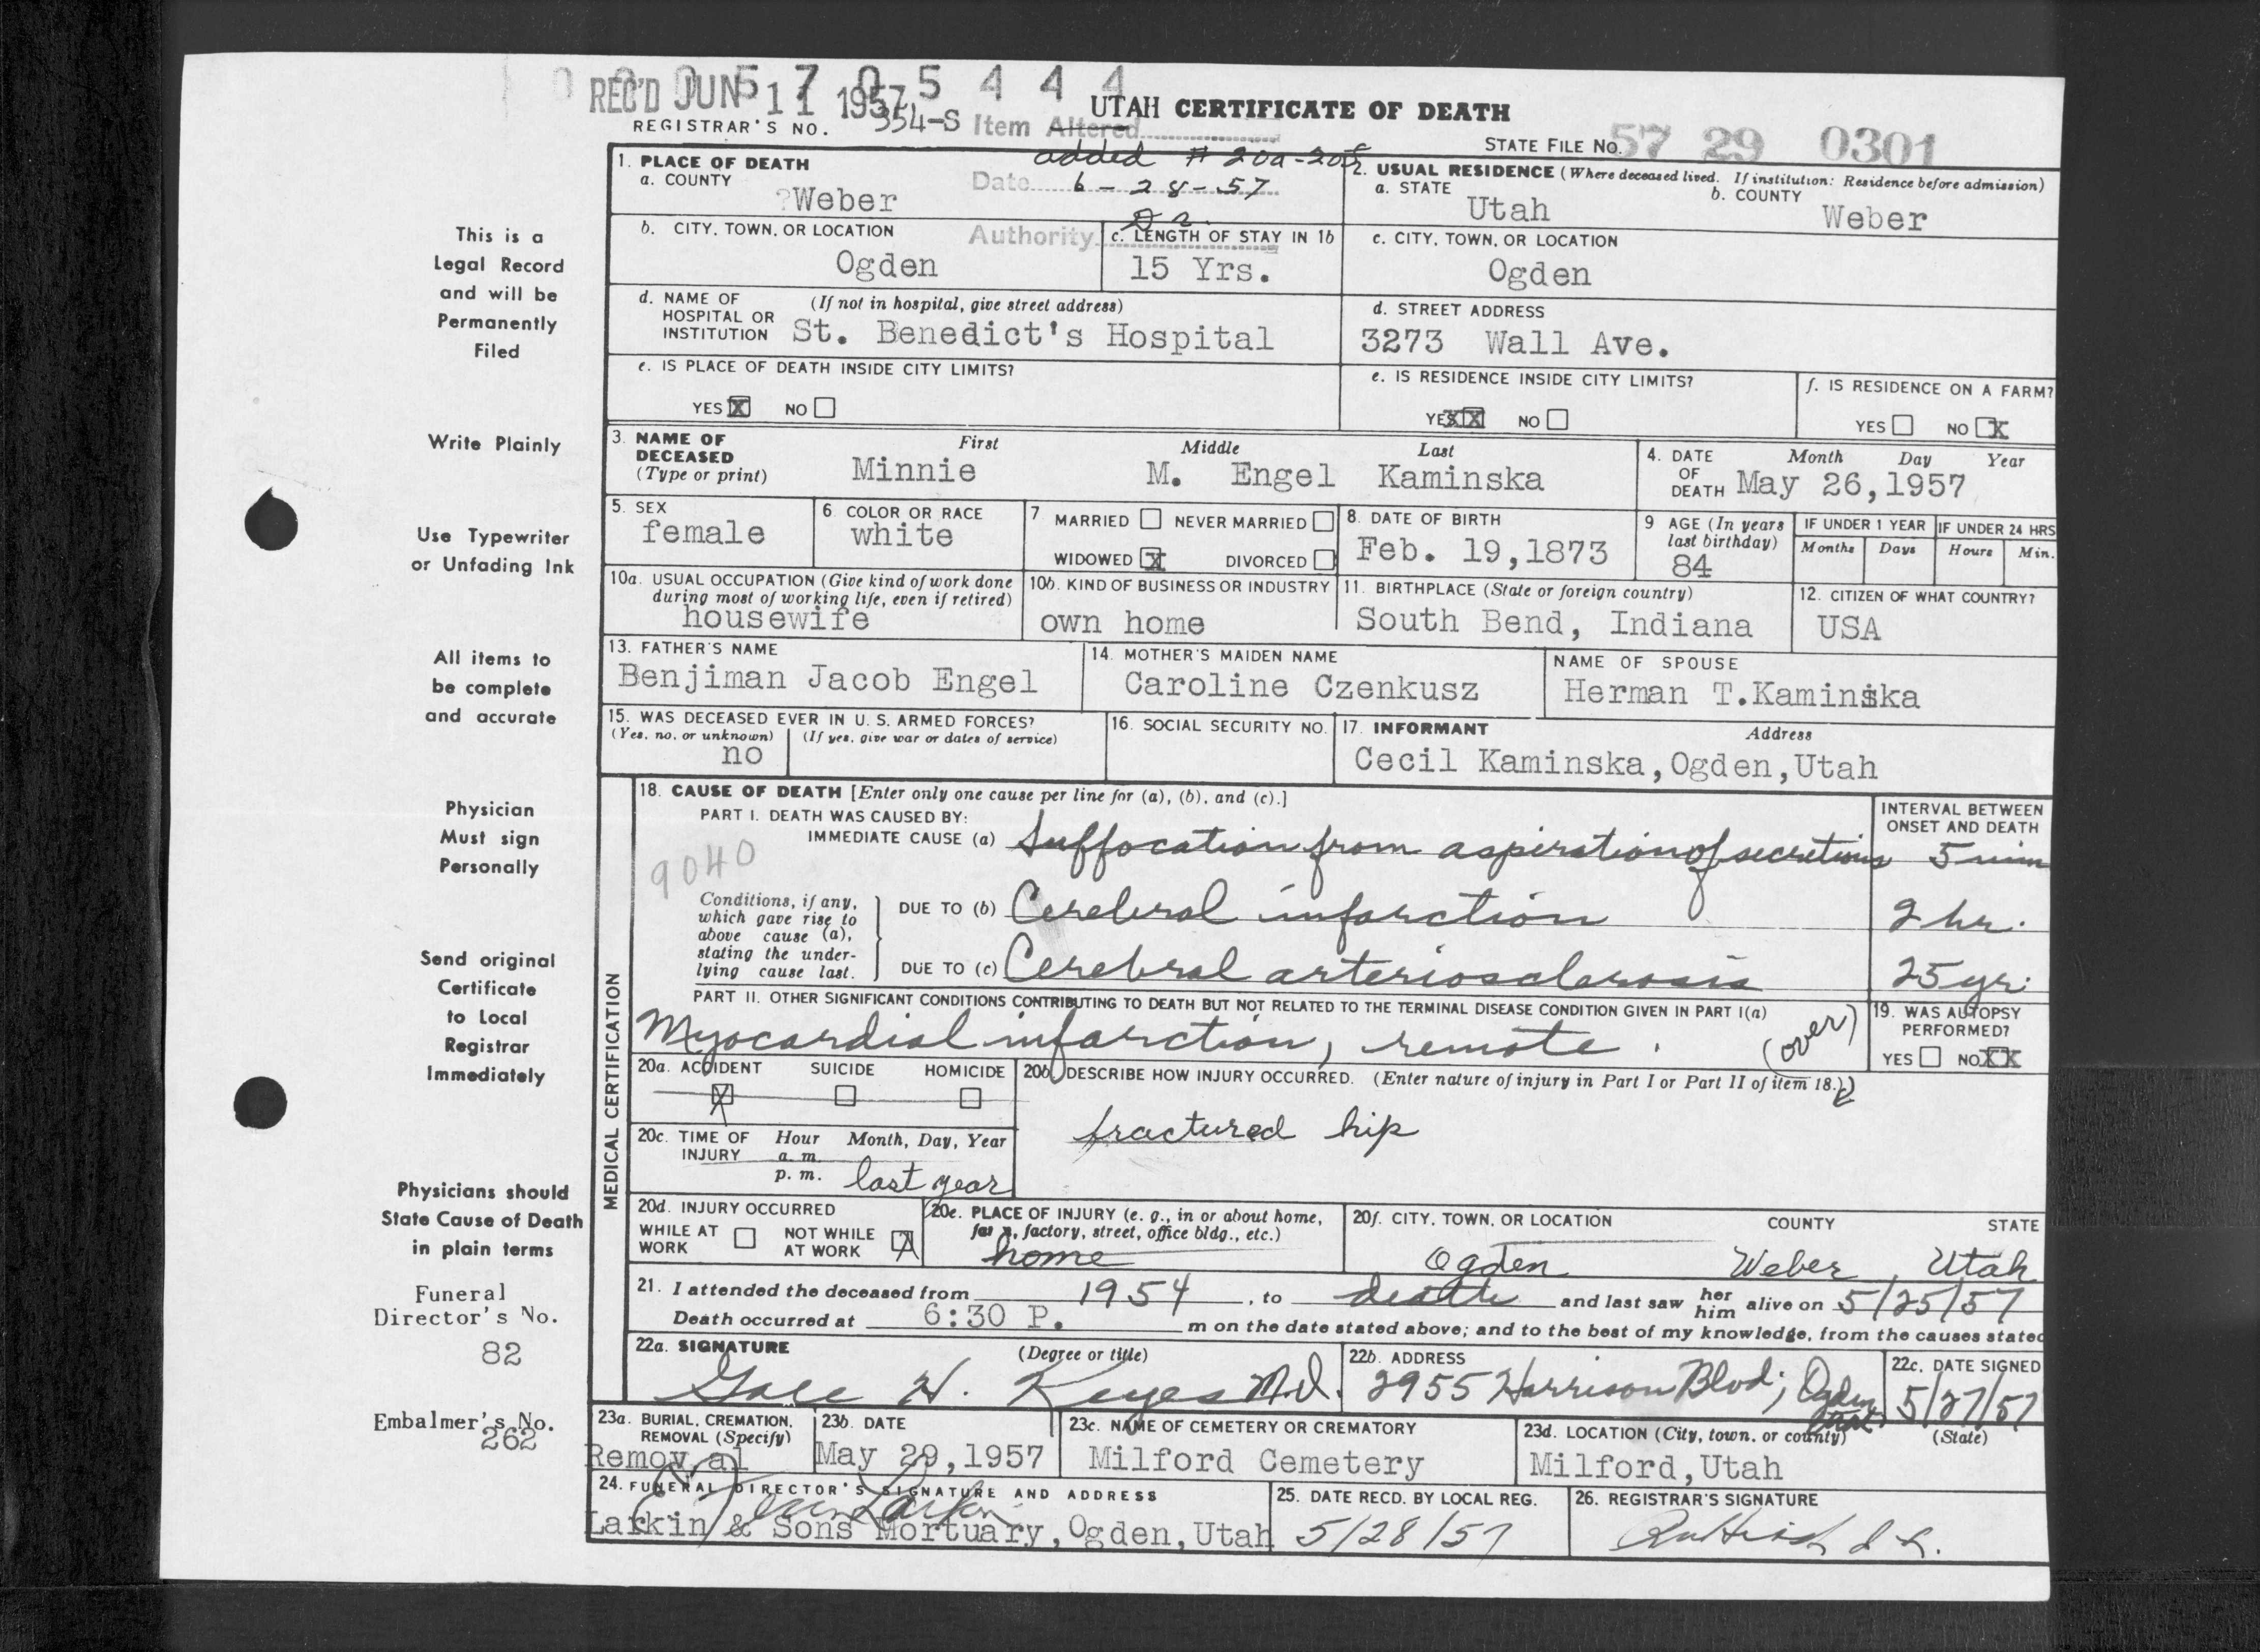 0005705444
REC'D JUN 11 1957
UTAH CERTIFICATE OF DEATH
REGISTRAR'S NO. 354-S Item Altered
STATE FILE NO. 57 29 0301
added # 20a-20f
Date 6-28-57
Authority
This is a
Legal Record
and will be
Permanently
Filed
Write Plainly
Use Typewriter
or Unfading Ink
All items to
be complete
and accurate
Physician
Must sign
Personally
Send original
Certificate
to Local
Registrar
Immediately
Physicians should
State Cause of Death
in plain terms
Funeral
Director's No.
82
Embalmer's No.
262
1. PLACE OF DEATH
a. COUNTY
?Weber
2. USUAL RESIDENCE (Where deceased lived. If institution: Residence before admission)
a. STATE Utah b. COUNTY Weber
b. CITY, TOWN, OR LOCATION
Ogden
c. LENGTH OF STAY IN 1b
15 Yrs.
c. CITY, TOWN, OR LOCATION
Ogden
d. NAME OF HOSPITAL OR INSTITUTION (If not in hospital, give street address)
St. Benedict's Hospital
d. STREET ADDRESS
3273 Wall Ave.
e. IS PLACE OF DEATH INSIDE CITY LIMITS?
YES X NO
e. IS RESIDENCE INSIDE CITY LIMITS?
YES XX NO
f. IS RESIDENCE ON A FARM?
YES NO X
3. NAME OF DECEASED (Type or print)
First Middle Last
Minnie M. Engel Kaminska
4. DATE OF DEATH Month Day Year
May 26,1957
5. SEX
female
6. COLOR OR RACE
white
7 MARRIED NEVER MARRIED
WIDOWED X DIVORCED
8. DATE OF BIRTH
Feb. 19,1873
9 AGE (In years last birthday)
84
IF UNDER 1 YEAR IF UNDER 24 HRS
Months Days Hours Min.
10a. USUAL OCCUPATION (Give kind of work done during most of working life, even if retired)
housewife
10b. KIND OF BUSINESS OR INDUSTRY
own home
11. BIRTHPLACE (State or foreign country)
South Bend, Indiana
12. CITIZEN OF WHAT COUNTRY?
USA
13. FATHER'S NAME
Benjiman Jacob Engel
14. MOTHER'S MAIDEN NAME
Caroline Czenkusz
NAME OF SPOUSE
Herman T.Kaminska
15. WAS DECEASED EVER IN U. S. ARMED FORCES?
(Yes, no, or unknown) (If yes, give war or dates of service)
no
16. SOCIAL SECURITY NO.
17. INFORMANT Address
Cecil Kaminska,Ogden,Utah
MEDICAL CERTIFICATION
18. CAUSE OF DEATH [Enter only one cause per line for (a), (b), and (c).]
INTERVAL BETWEEN ONSET AND DEATH
PART I. DEATH WAS CAUSED BY:
IMMEDIATE CAUSE (a) Suffocation from aspiration of secretions 5 min
9040
Conditions, if any, which gave rise to above cause (a), stating the underlying cause last.
DUE TO (b) Cerebral infarction 2 hr.
DUE TO (c) Cerebral arteriosclerosis 25 yr.
PART II. OTHER SIGNIFICANT CONDITIONS CONTRIBUTING TO DEATH BUT NOT RELATED TO THE TERMINAL DISEASE CONDITION GIVEN IN PART I(a)
Myocardial infarction, remote. (over)
19. WAS AUTOPSY PERFORMED?
YES NO XX
20a. ACCIDENT SUICIDE HOMICIDE
X
20b. DESCRIBE HOW INJURY OCCURRED. (Enter nature of injury in Part I or Part II of item 18.)
fractured hip
20c. TIME OF INJURY Hour Month, Day, Year
a. m.
p. m. last year
20d. INJURY OCCURRED
WHILE AT WORK NOT WHILE AT WORK X
20e. PLACE OF INJURY (e. g., in or about home, farm, factory, street, office bldg., etc.)
home
20f. CITY, TOWN, OR LOCATION COUNTY STATE
Ogden Weber, Utah
21. I attended the deceased from 1954, to death and last saw her him alive on 5/25/57
Death occurred at 6:30 P. m on the date stated above; and to the best of my knowledge, from the causes stated
22a. SIGNATURE (Degree or title)
H. Keyes M.D.
22b. ADDRESS
2955 Harrison Blvd; Ogden Utah
22c. DATE SIGNED
5/27/57
23a. BURIAL, CREMATION, REMOVAL (Specify)
Removal
23b. DATE
May 29,1957
23c. NAME OF CEMETERY OR CREMATORY
Milford Cemetery
23d. LOCATION (City, town, or county) (State)
Milford,Utah
24. FUNERAL DIRECTOR'S SIGNATURE AND ADDRESS
Larkin & Sons Mortuary,Ogden,Utah
25. DATE RECD. BY LOCAL REG.
5/28/57
26. REGISTRAR'S SIGNATURE